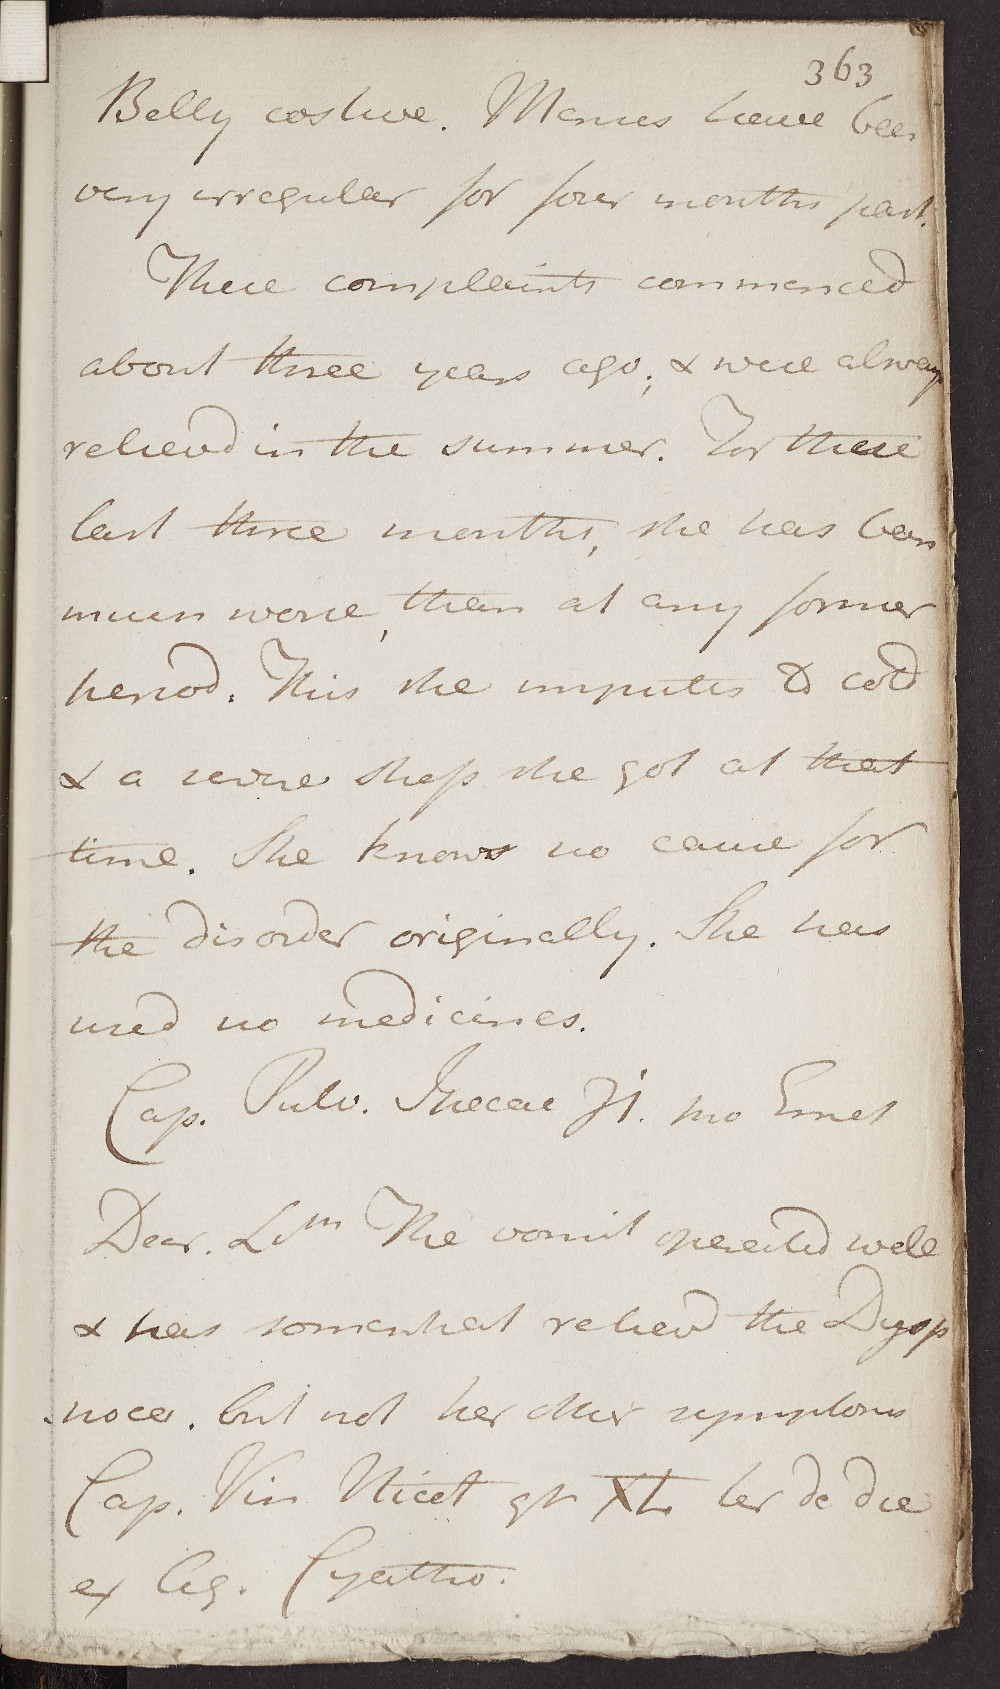 363
Belly costive. Menses have been
very irregular for four months past.
These complaints commenced
about three years ago; & were always
relievd in the summer. For these
last three months, she has been
much worse, than at any former
period. This she imputes to cold
& a severe she got at that
time. She knows no cause for
the disorder originally. She has
used no medicines.
Cap. Pulv. Ipecac ʒi. pro Emet
Decr. 21m The vomit operated well
& has somewhat relievd the Dysp
noea. but not her other symptoms
Cap. Vin Nicot gtt XL ter de die
ex Aq. Cyatho.